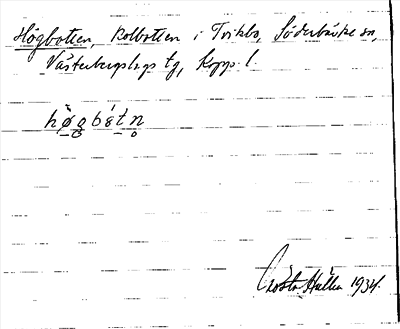 Högbotten, kolbotten i Tvikbo, Söderbärke sn,
Västerbergslags tg, Kopp. l.
hø̀gbɞ́tn̥
Gösta Hallen 1934.